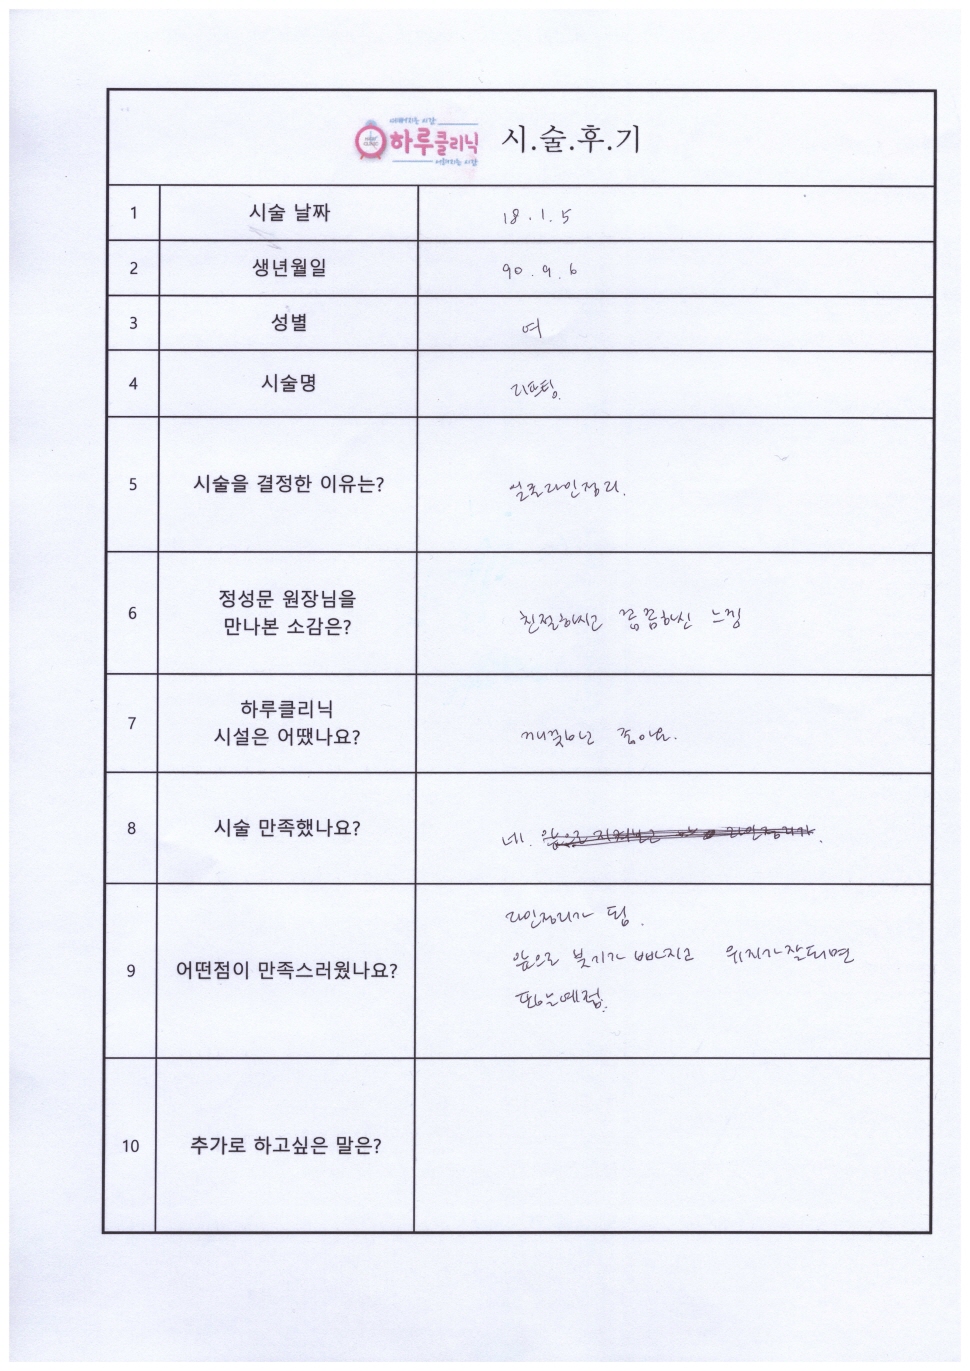 하루클리닉 시.술.후.기
1 시술 날짜 18.1.5
2 생년월일 90.9.6
3 성별 여
4 시술명 리프팅.
5 시술을 결정한 이유는? 얼굴라인정리.
6 정성문 원장님을
만나본 소감은? 친절하시고 꼼꼼하신 느낌
7 하루클리닉
시설은 어땠나요? 깨끗하고 좋아요.
8 시술 만족했나요? 네.
9 어떤점이 만족스러웠나요? 라인정리가 됨.
앞으로 붓기가 빠지고 유지가잘되면
또하는예정.
10 추가로 하고싶은 말은?